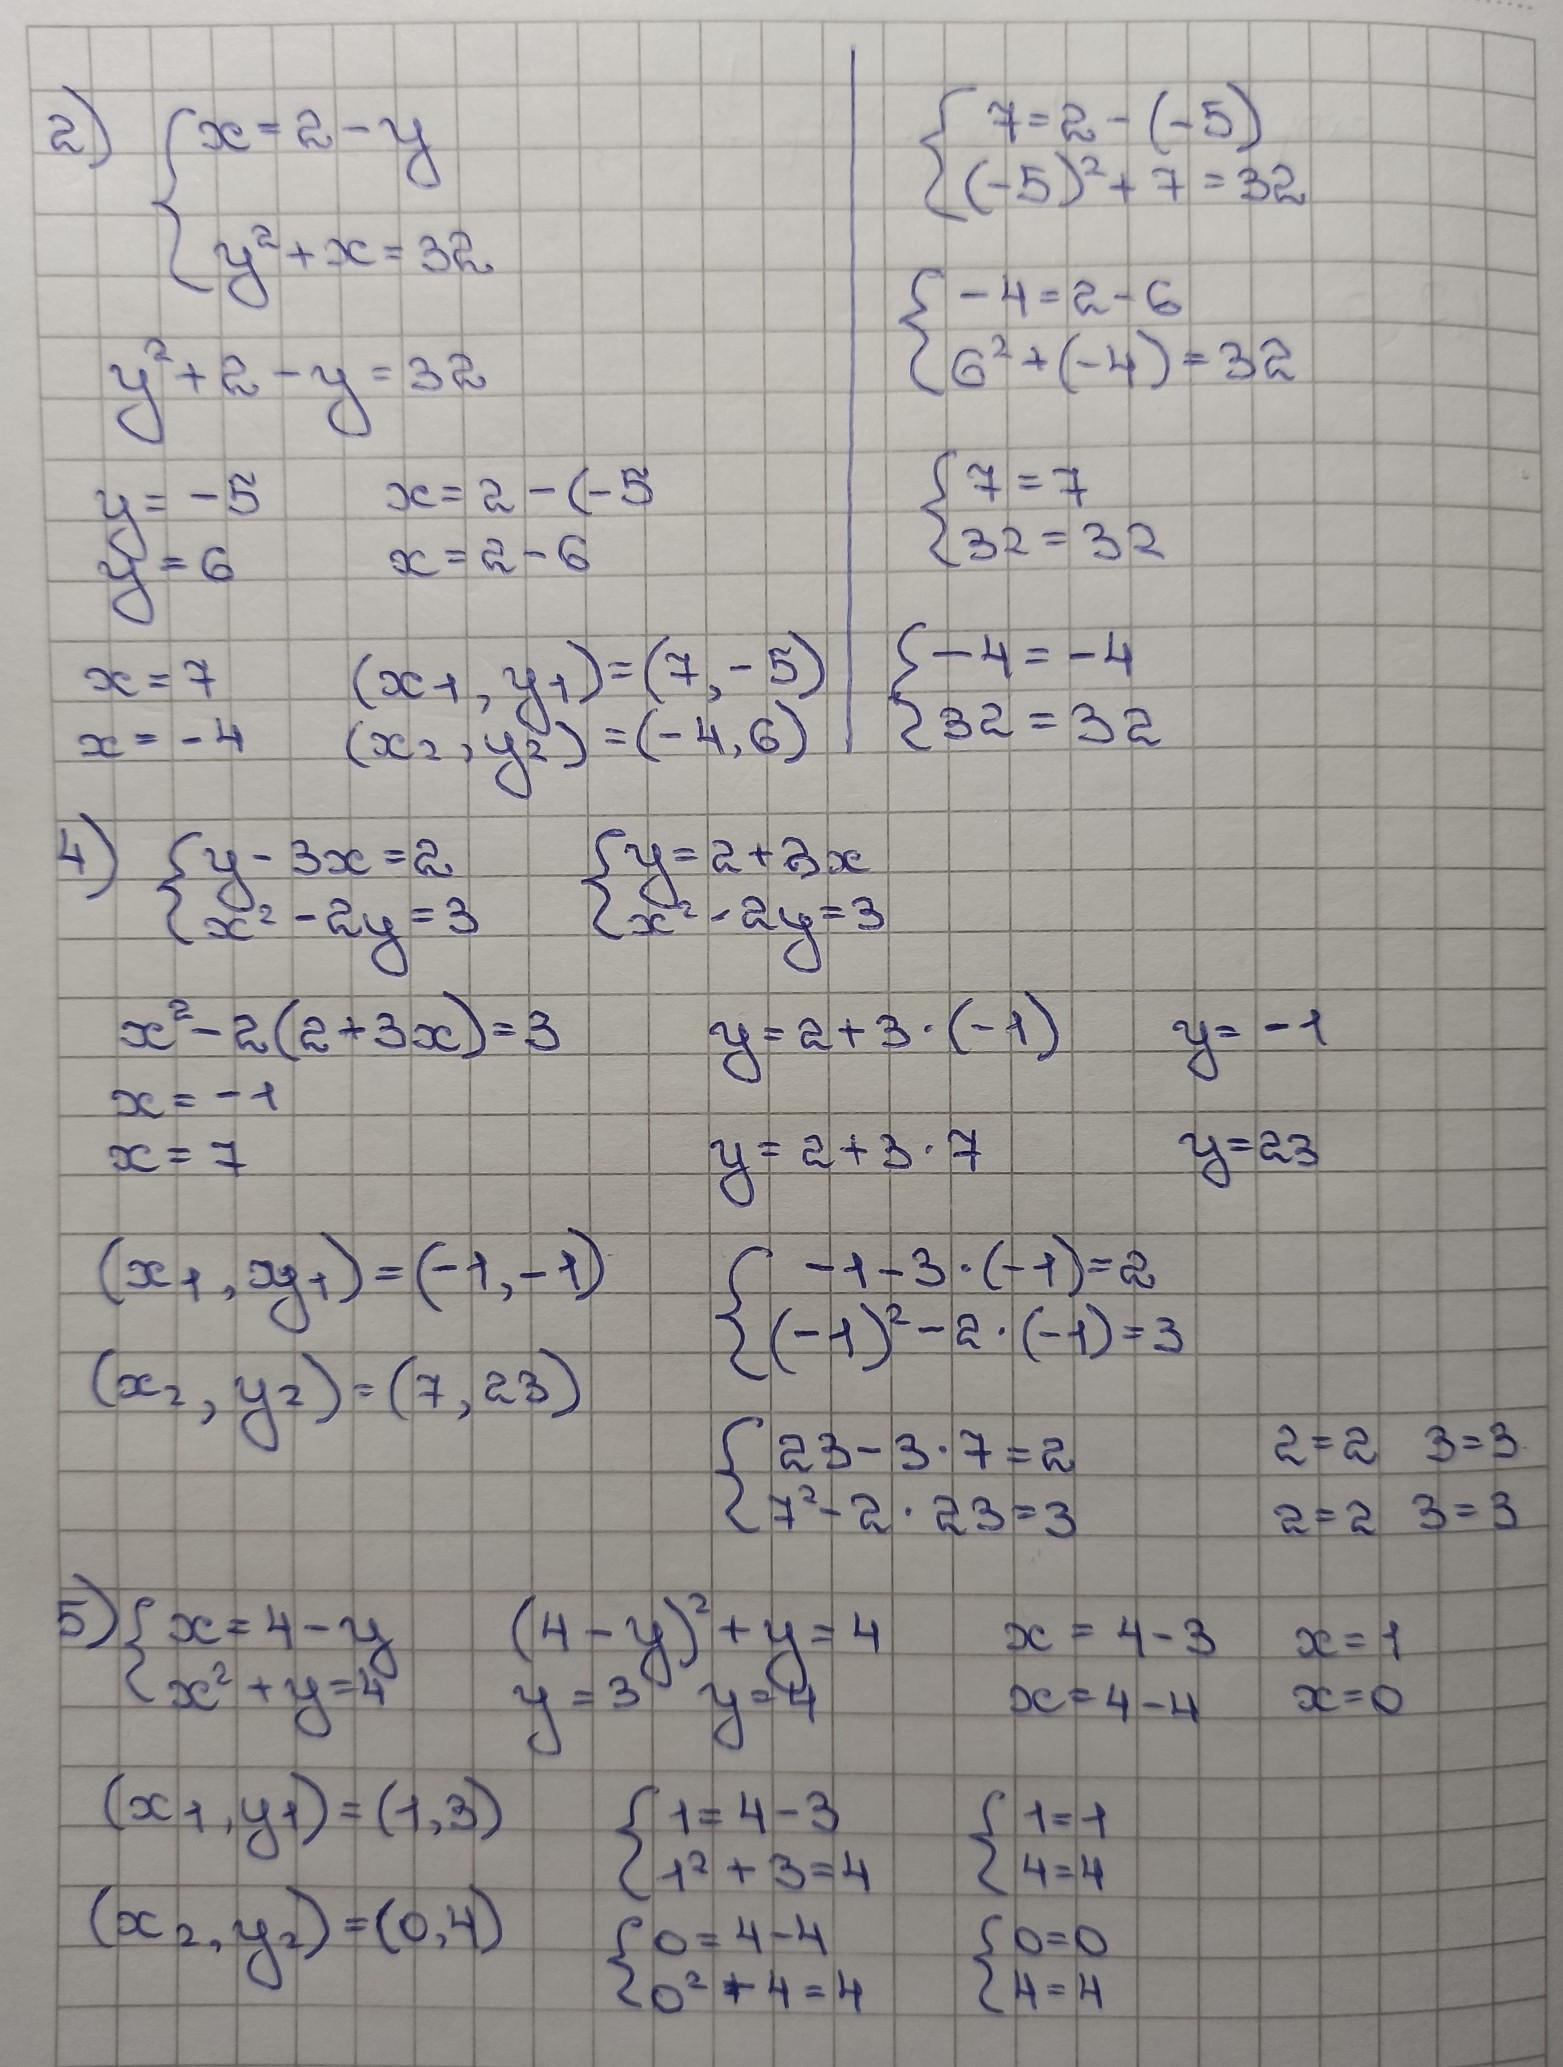 2) { x = 2 - y
{ y² + x = 32
y² + 2 - y = 32
y = -5 x = 2 - (-5
y = 6 x = 2 - 6
x = 7 (x₁, y₁) = (7, -5)
x = -4 (x₂, y₂) = (-4, 6)
{ 7 = 2 - (-5)
{ (-5)² + 7 = 32
{ -4 = 2 - 6
{ 6² + (-4) = 32
{ 7 = 7
{ 32 = 32
{ -4 = -4
{ 32 = 32
4) { y - 3x = 2 { y = 2 + 3x
{ x² - 2y = 3 { x² - 2y = 3
x² - 2(2 + 3x) = 3 y = 2 + 3 · (-1) y = -1
x = -1
x = 7 y = 2 + 3 · 7 y = 23
(x₁, xy₁) = (-1, -1) { -1 - 3 · (-1) = 2
{ (-1)² - 2 · (-1) = 3
(x₂, y₂) = (7, 23)
{ 23 - 3 · 7 = 2 2 = 2 3 = 3
{ 7² - 2 · 23 = 3 2 = 2 3 = 3
5) { x = 4 - y (4 - y)² + y = 4 x = 4 - 3 x = 1
{ x² + y = 4 y = 3 y = 4 x = 4 - 4 x = 0
(x₁, y₁) = (1, 3) { 1 = 4 - 3 { 1 = 1
{ 1² + 3 = 4 { 4 = 4
(x₂, y₂) = (0, 4) { 0 = 4 - 4 { 0 = 0
{ 0² + 4 = 4 { 4 = 4